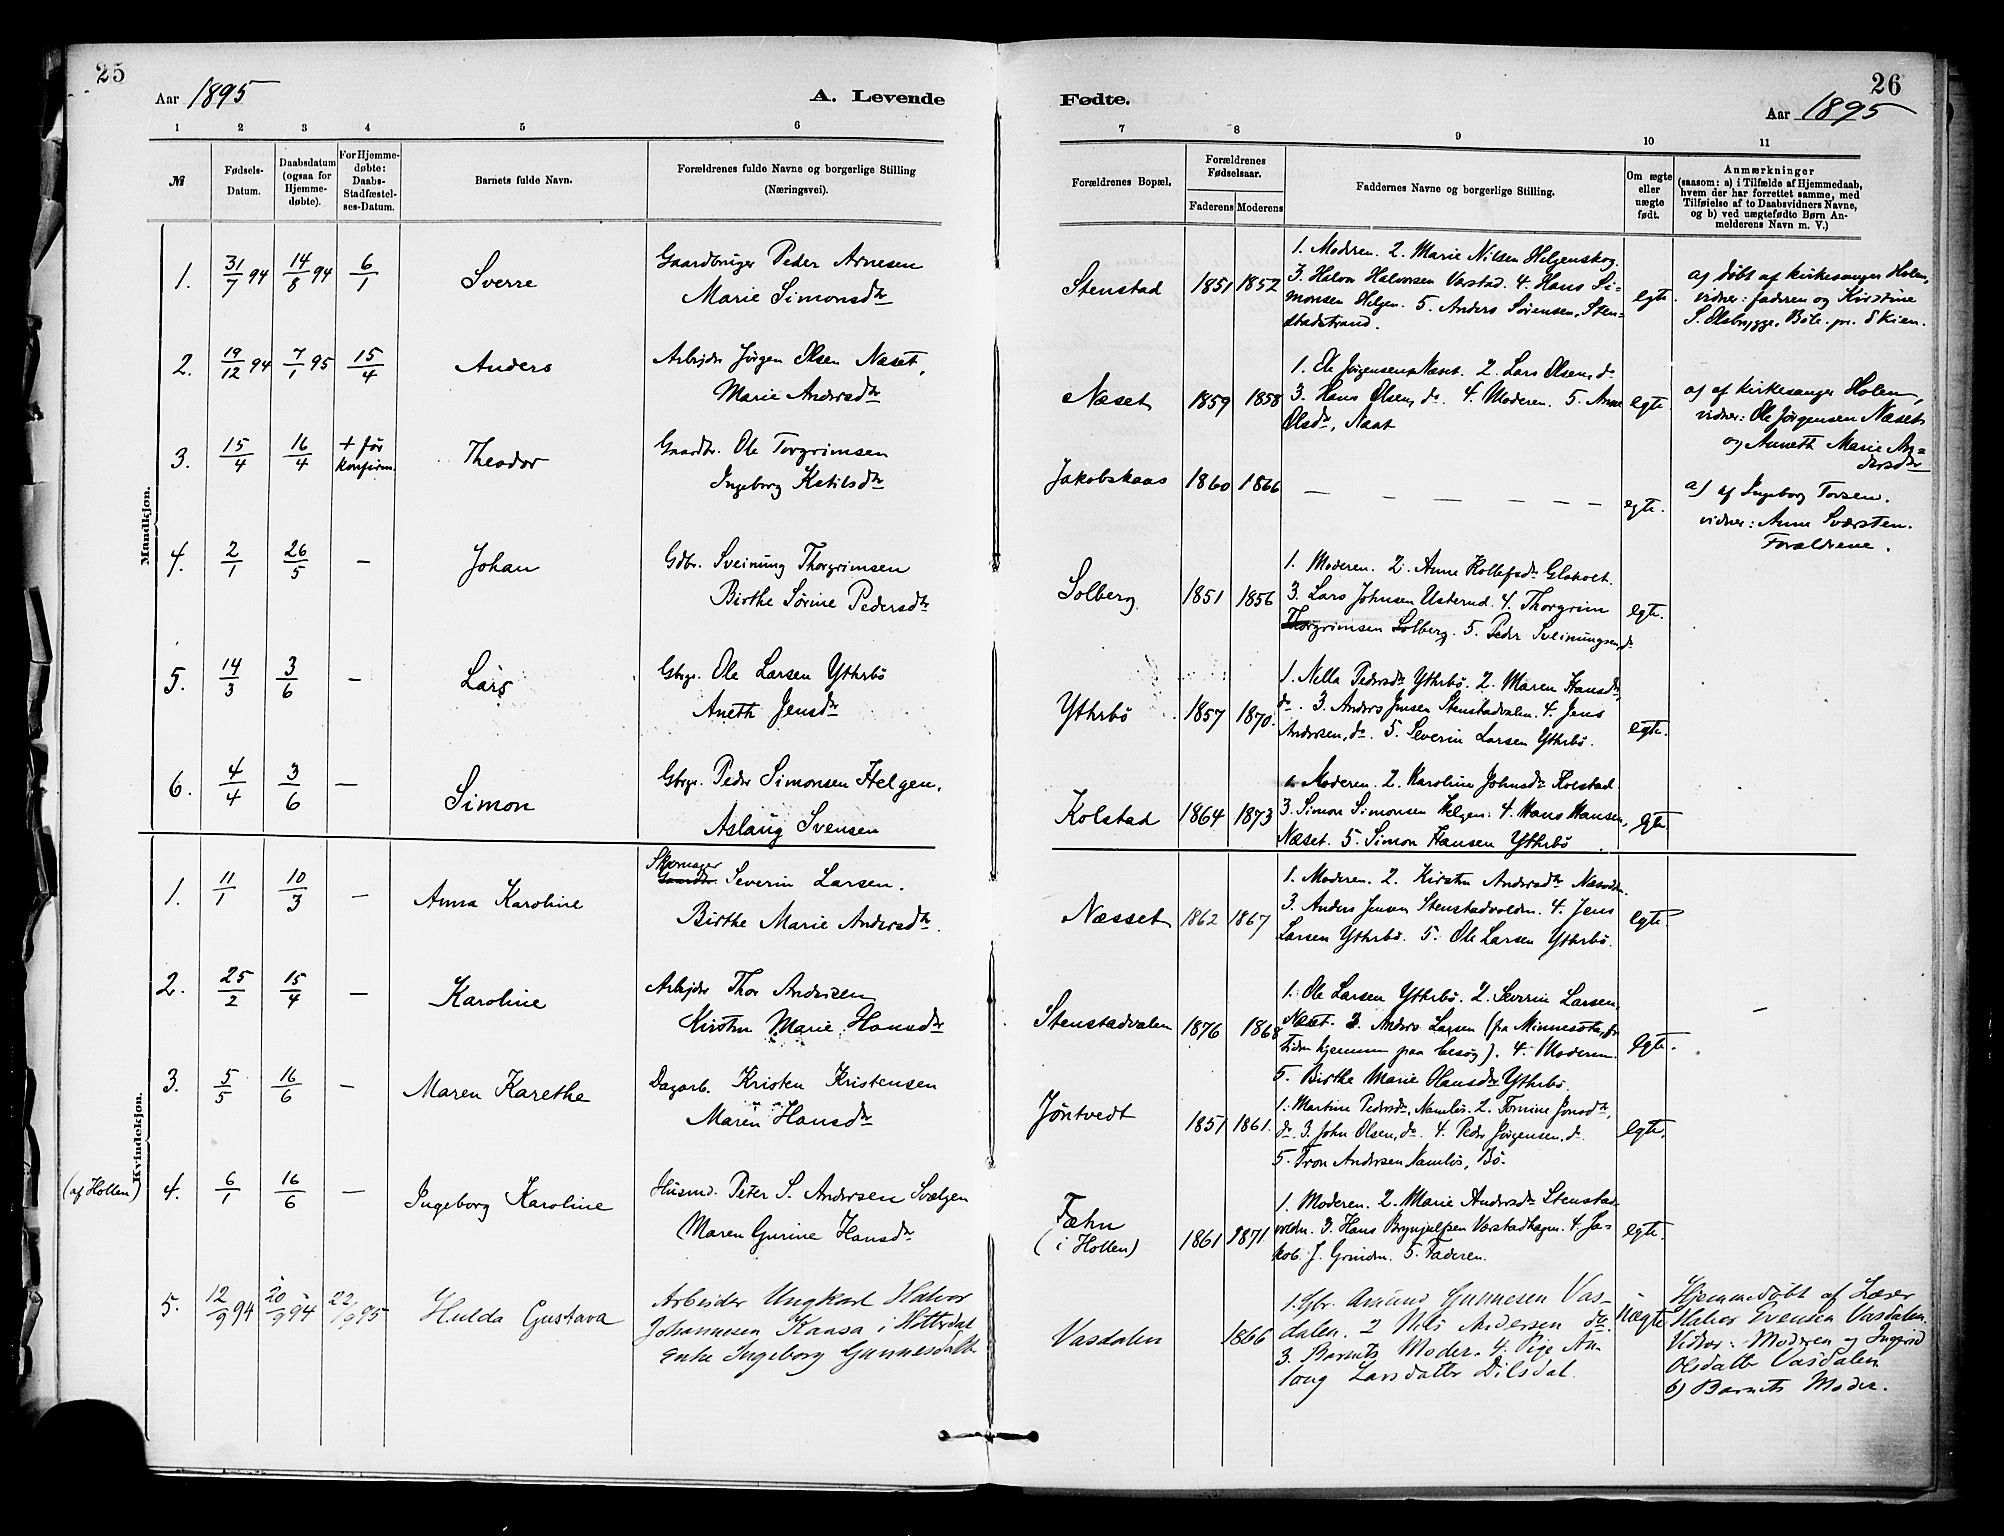 25
Aar 1895
A. Levende
1 2 3 4 5 6
№
Fødsels-
Datum.
Daabsdatum
(ogsaa for
Hjemme-
døbte).
For Hjemme-
døbte:
Daabs-
Stadfæstel-
ses-Datum.
Barnets fulde Navn.
Forældrenes fulde Navne og borgerlige Stilling
(Næringsvei).
Mandkjøn.
1. 31/7 94 14/8 94 6/1 Sverre
Gaardbruger Peder Arnesen
Marie Simonsdtr
2. 19/12 94 7/1 95 15/4 Anders
Arbejder Jørgen Olsen Næset,
Marie Andersdtr
3. 15/4 16/4 + før
konfirm. Theodor
Gaardbr. Ole Torgrimsen
Ingeborg Ketilsdtr
4. 2/1 26/5 — Johan
Gdbr. Sveinung Thorgrimsen
Birthe Sørine Pedersdtr
5. 14/3 3/6 — Lars
Gbrgr. Ole Larsen Ythrbö
Aneth Jensdtr
6. 4/4 3/6 — Simon
Gbrgr. Peder Simonsen Helgen.
Aslaug Svensen
Kvindekjøn.
1. 11/1 10/3 — Anna Karoline
Skomager
Gaardbr. Severin Larsen.
Birthe Marie Andersdtr.
2. 25/2 15/4 — Karoline
Arbejder Thor Andersen
Kirsten Marie Hansdtr
3. 5/5 16/6 — Maren Karethe
Dagarb. Kristen Kristensen
Maren Hansdtr
(af Hollen) 4. 6/1 16/6 — Ingeborg Karoline
Husmd. Peter S. Andersen Svælgen
Maren Gurine Hansdtr
5. 12/9 94 20/9 94 22/9 95 Hulda Gustava
Arbeider Ungkarl Halvor
Johannesen Kaasa i Hitterdal
Enke Ingeborg Gunnesdatter
26
Fødte.
Aar 1895
7 8 9 10 11
Forældrenes Bopæl.
Forældrenes
Fødselsaar.
Faderens Moderens
Faddernes Navne og borgerlige Stilling.
Om ægte
eller
uægte
født.
Anmærkninger
(saasom: a) i Tilfælde af Hjemmedaab,
hvem der har forrettet samme, med
Tilføielse af to Daabsvidners Navne,
og b) ved uægtefødte Børn An-
melderens Navn m. V.)
Stenstad 1851 1852
1. Moderen. 2. Marie Nilsen Helgenskog.
3. Halvor Halvorsen Værstad. 4. Hans Si-
monsen Helgen. 5. Anders Sørensen, Sten-
stadstrand.
egte.
a) døbt af kirkesanger Holen,
vidner: faderen og Kirstine
S. Olsbrygge, Böle pr. Skien.
Næset 1859 1858
1. Ole Jørgensen Næset. 2. Lars Olsen, do
3. Hans Olsen, do. 4. Moderen. 5. Anne
Olsdtr,
egte.
a) af kirkesanger Holen,
vidner: Ole Jørgensen Næset
og Anneth Marie An-
dersdtr
Jakobskaas 1860 1866
— — — — — — —
egte.
a) af Ingeborg Torsen.
vidner: Anne Sværsten.
Forældrene.
Solberg 1851 1856
1. Moderen. 2. Anne Kollefsdtr
3. Lars Johnsen Usterud. 4. Thorgrim
Thorgrimsen Solberg. 5. Peder Sveinungsen, do
egte.
Ythrbö 1857 1870.
1. Nella Pedersdtr Ythrbö. 2. Maren Hansdtr,
do. 3. Anders Jensen Stenstadvalen. 4. Jens
Andersen, do. 5. Severin Larsen Ythrbö.
egte.
Kolstad 1864 1873
1. Moderen. 2. Karoline Johnsdtr Kolstad
3. Simon Simonsen Helgen. 4. Hans Hansen,
Næset. 5. Simon Hansen Ythrbö
egte.
Næsset 1862 1867
1. Moderen. 2. Kirsten Andersdtr
3. Anders Jensen Stenstadvolden. 4. Jens
Larsen Ythrbö. 5. Ole Larsen Ythrbö.
egte.
Stenstadvalen 1876 1868
1. Ole Larsen Ythrbö. 2. Severin Larsen,
Næset. 3. Anders Larsen (fra Minnesota, for
tiden hjemme paa besøg). 4. Moderen.
5. Birthe Marie Olansdtr Ythrbö.
egte.
—
Jøntvedt 1851 1861.
1. Martine Pedersdtr, Namløs. 2. Tomine Jonsdtr,
do. 3. John Olsen, do. 4. Peder Jørgensen, do.
5. Tron Andersen Namløs, Bö.
egte.
Fæhn
(i Hollen)
1861 1871
1. Moderen. 2. Marie Andersdtr Stenstad-
volden. 3. Hans Brynjulfsen Værstadhagen. 4. Ja-
kob J. Grinden. 5. Faderen.
egte.
Vasdalen 1866
1. Gbr. Amund Gunnesen Vas-
dalen. 2 Nils Andersen do.
3. Barnets Moder. 4. Pige An-
laug Larsdatter Dilsdal.
Uægte
Hjemmedøbt af Lærer
Halvor Evensen Vasdalen.
Vidner: Moderen og Ingerid
Olsdatter Vasdalen
b) Barnets Moder.